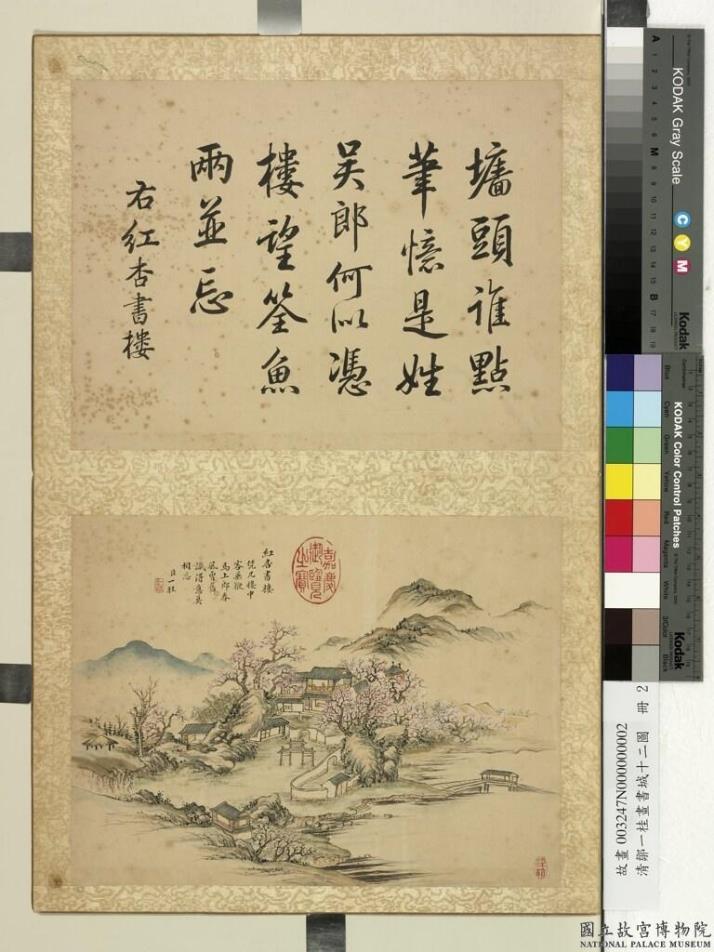 墻頭誰點
筆憶是姓
吴郎何似憑
樓望筌魚
兩並忘
右紅杏書樓
紅杏書樓
馬上郎春
相忘
臣一桂
嘉慶
御覽
之寶
KODAK Gray Scale
C Y M
Kodak
A 1 2 3 4 5 6 M 8 9 10 11 12 13 14 15 B 17 18 19
KODAK Color Control Patches
Blue Cyan Green Yellow Red Magenta White 3/Color Black
Kodak
故畫 003247N000000002
清鄒一桂畫書城十二圖 冊 2
國立故宮博物院
NATIONAL PALACE MUSEUM